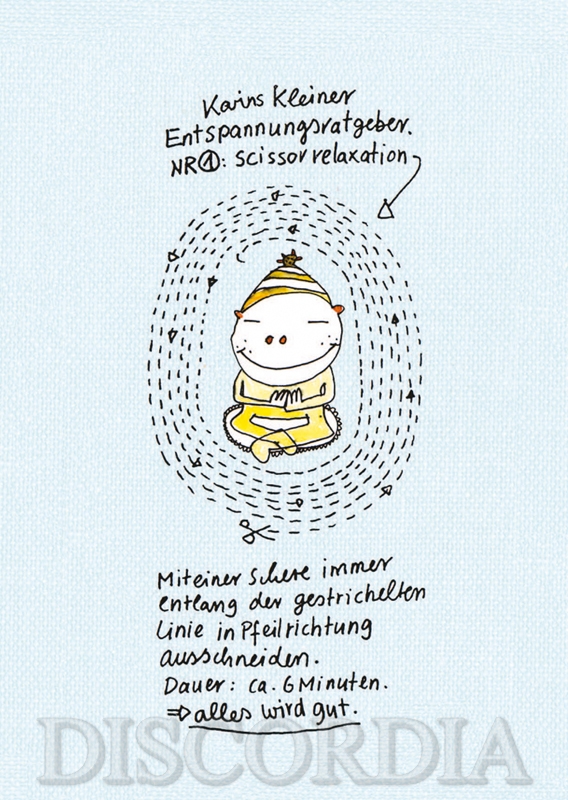 Karins kleiner
Entspannungsratgeber.
NR①: Scissor relaxation
Mit einer Schere immer
entlang der gestrichelten
Linie in Pfeilrichtung
ausschneiden.
Dauer: ca. 6 Minuten.
⇒ alles wird gut.
DISCORDIA